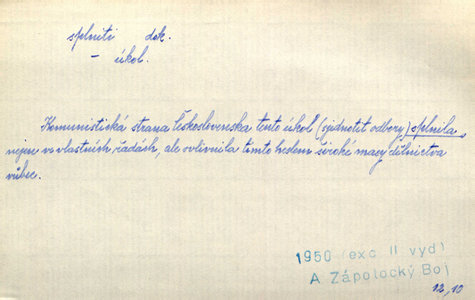 splniti dok.
– úkol.
Komunistická strana Československa tento úkol (sjednotit odbory) splnila
nejen ve vlastních řadách, ale ovlivnila tímto heslem široké masy dělnictva
vůbec.
1950 (exc II vyd)
A Zápotocký Boj
12,10